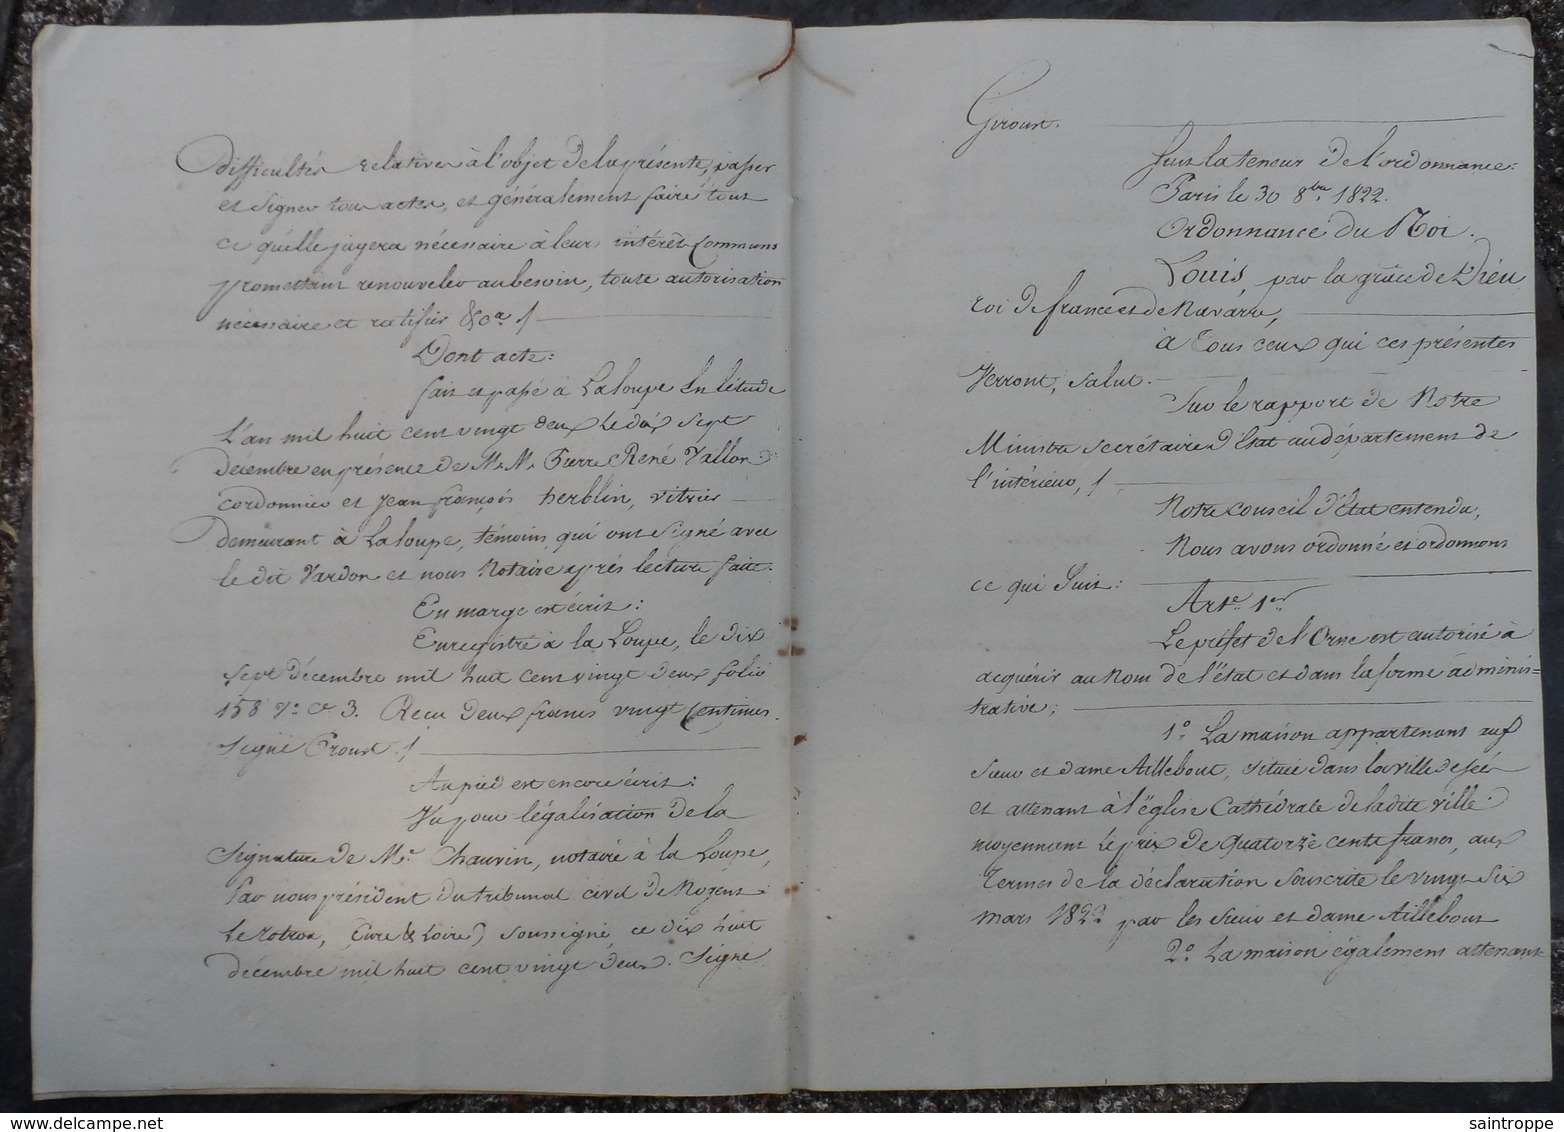 difficultés relatives à l'objet de la présente, passer
et signer tous actes, et généralement faire tout
ce qu'elle jugera nécessaire à leurs intérêts communs
promettant renouveler au besoin, toute autorisation
nécessaire et ratifier &ca /
Dont acte:
fait et passé à La loupe En l'étude
L'an mil huit cent vingt deux Le dix sept
décembre en présence de M.M. Pierre René Vallon
cordonnier et jean françois herblin, vitrier
demeurant à La loupe, témoins qui ont signé avec
le dit Vardon et nous Notaire après lecture faite.
En marge est écrit:
Enregistré à la Loupe, le dix
sept décembre mil huit cent vingt deux folio
158 Vo Ce 3. Reçu deux francs vingt centimes.
Signé Proust. /
Au pied est encore écrit:
Vu pour légalisation de la
Signature de Me. Chauvin, notaire à la Loupe,
Par nous président du tribunal civil de Nogent
Le rotrou, (Eure & Loire) soussigné ce dix huit
décembre mil huit cent vingt deux. Signé
Giroust.
Suit la teneur de l'ordonnance:
Paris le 30 8bre 1822.
Ordonnance du Roi.
Louis, par la grâce de Dieu
roi de france et de Navarre,
à Tous ceux qui ces présentes
Verront, salut.
Sur le rapport de Notre
Ministre secrétaire d'Etat au département de
l'intérieur, /
Notre conseil d'Etat entendu,
Nous avons ordonné et ordonnons
ce qui suit:
Arte. 1er.
Le préfet de l'Orne est autorisé à
acquérir au Nom de l'état et dans la forme adminis=
trative;
1o. La maison appartenant auf
sieur et dame Aillebout, située dans la ville de séés
et attenant à l'église Cathédrale de la dite ville
moyennant le prix de quatorze cents francs, aux
Termes de la déclaration souscrite le vingt six
mars 1822 par les sieur et dame Aillebout
2o. La maison également attenant
saintroppe